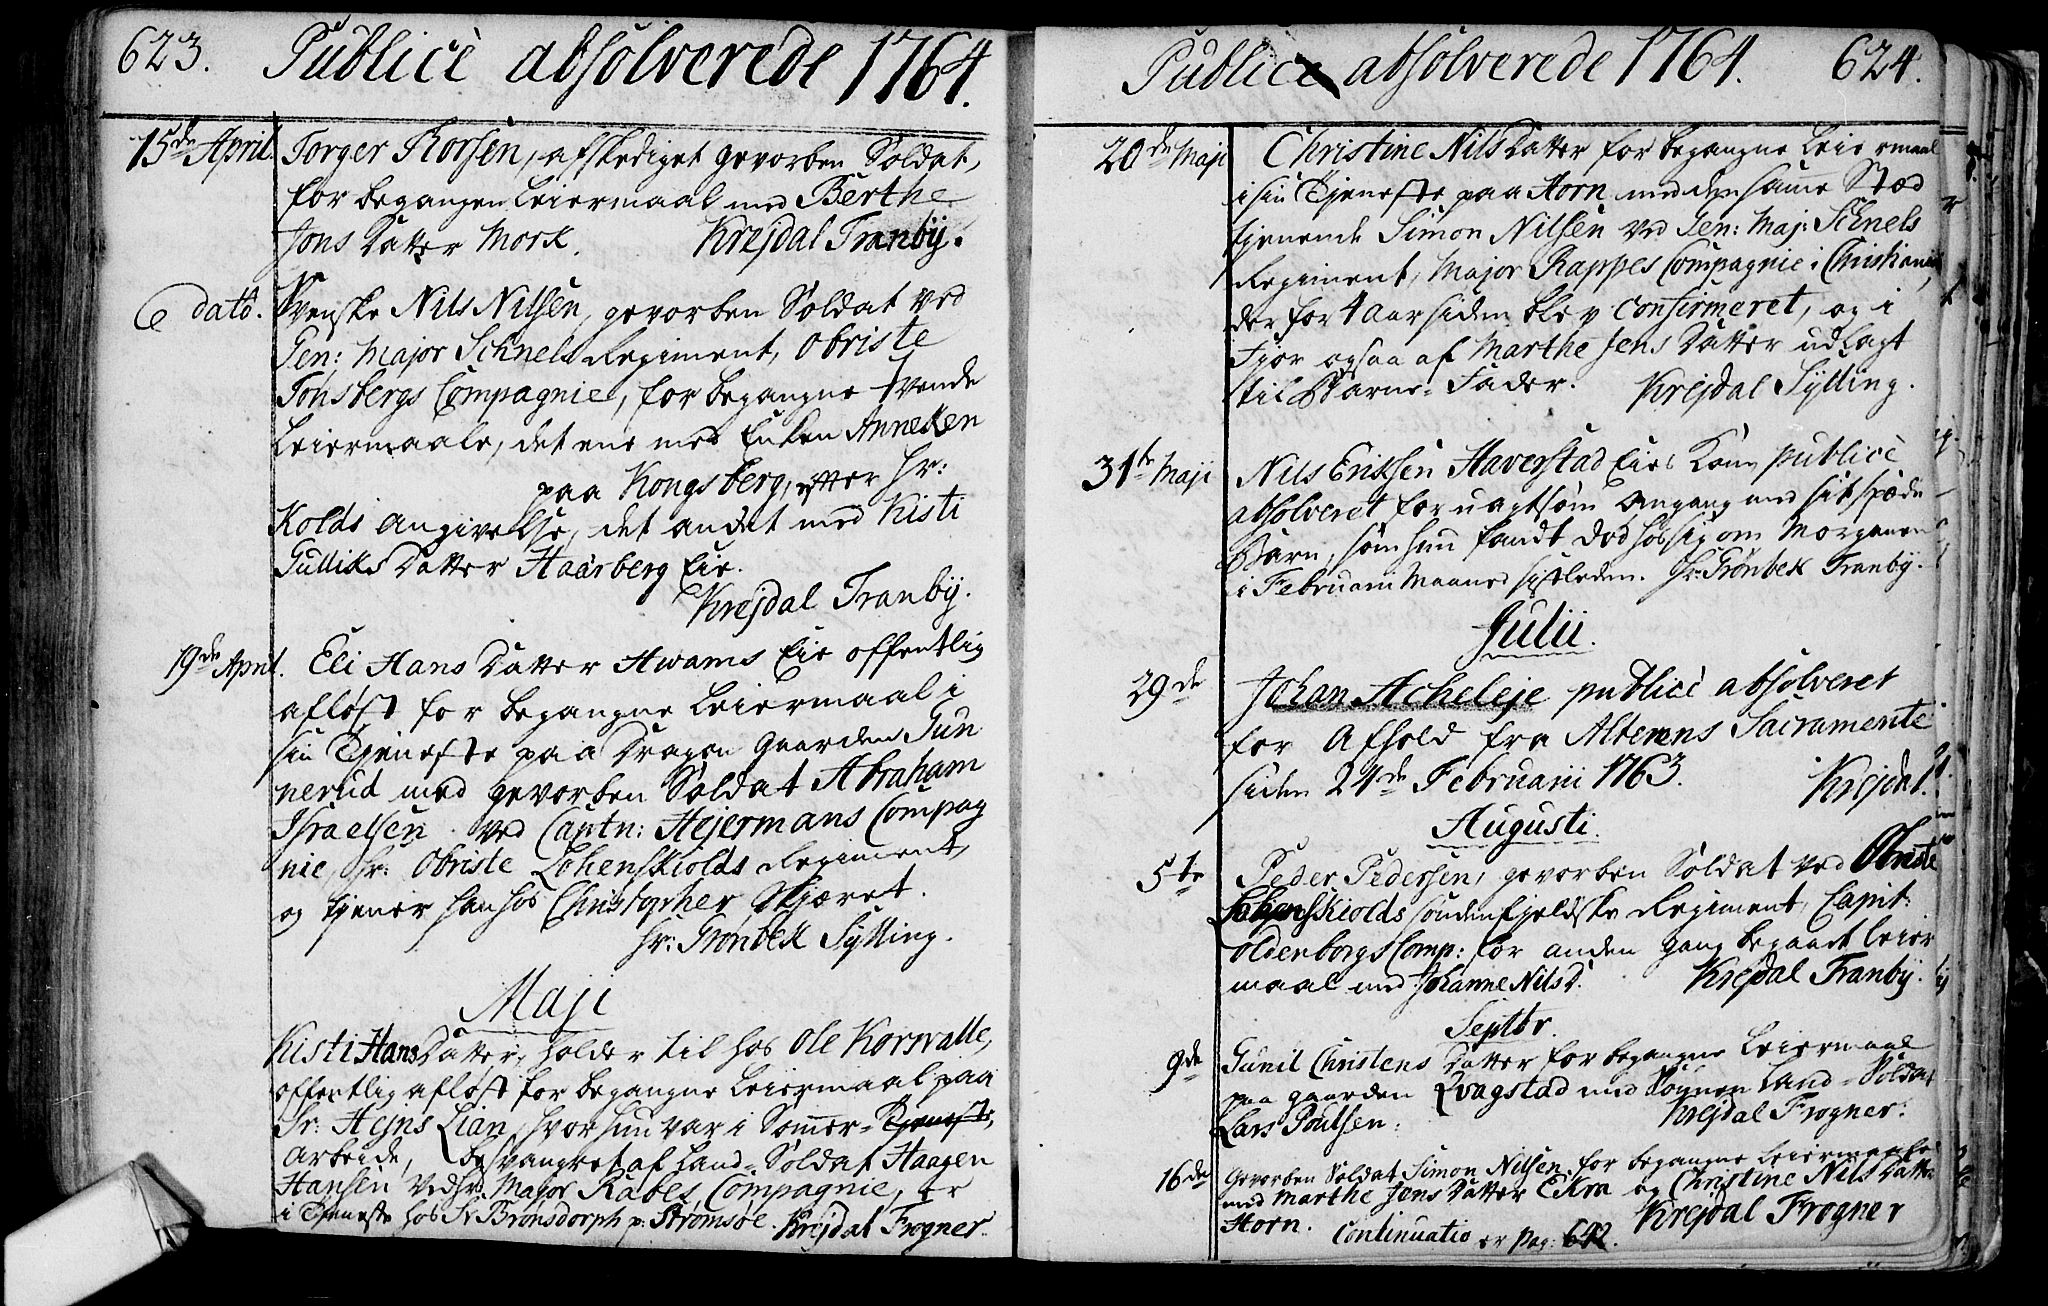 623. Publicè absolverede 1764.
15de April. Torger Thorsen, afskediget gevorben Soldat,
for begangen Leiermaal med Berthe
Jons Datter Mork. Krejdal Tranby.
Eodem dato. Svenske Nils Nilsen, gevorben Soldat ved
Gen: Major Schnels Regiment, Obriste
Tonsbergs Compagnie, for begangne tvende
Leiermaale, det ene med Enken Anneken
paa Kongsberg, efter Hr:
Kolds angivelse, det andet med Kisti
Gulliks Datter Haarberg Eie.
Krejdal Tranby.
19de April. Eli Hans Datter Hwams Eie offentlig
afløst for begangne Leiermaal i
sin Tjeneste paa Dragon Gaarden Gun
nerud med gevorben Soldat Abraham
Israelsen ved Captn: Hejermans Compag
nie, Hr: Obriste Lohenskiolds Regiment,
og tjener han hos Christopher Skjæret.
Hr: Grønbek Sylling.
Maji
Kisti Hans Datter, holder til hos Ole Korsvalle,
offentlig afløst for begangne Leiermaal paa
Sr: Hejns Lian, hvor hun var i Sommer-Tjeneste,
Arbeide, besvangret af Land-Soldat Haagen
Hansen ved Hr: Major Rabes Compagnie, er
i Tjeneste hos Sr Brønsdorph p: Strømsøe. Krejdal Frogner.
Publicè absolverede 1764. 624.
20de Maji Christine Nils Datter for begangne Leiermaal
i sin Tjeneste paa Horn med den samme Stæd
tjenende Simon Nilsen ved Gen: Maj: Schnels
Regiment, Major Rappes Compagnie i Christiania,
der for 4 Aar siden blev Confirmeret, og i
Fjor ogsaa af Marthe Jens Datter udlagt
til Barne-Fader. Krejdal Sylling.
31te Maji Nils Erissen Haverstad Eies Kone publicè
absolveret for uagtsom Omgang med sit spæde
Barn, som hun fandt død hos sig om Morgenen
i Februarii Maaned sistleden. Hr: Grønbek Tranby.
Julii.
29de Johan Acheleje publicè absolveret
for Afhold fra Alterens Sacramente
siden 24de Februarii 1763. Krejdal.
Augusti.
5te Peder Pedersen, gevorben Soldat ved Obriste
Lohenskiolds søndenfjeldske Regiment, Capit:
Oldenborgs Comp: for anden gang begaaet Leier
maal med Johanne Nils D. Krejdal Tranby.
Septbr.
9de Gunil Christens Datter for begangne Leiermaal
paa gaarden Qvagstad med Land-Soldat
Lars Poulsen: Krejdal Frogner.
16de Gevorben Soldat Simon Nilsen for begangne Leiermaale
med Marthe Jens Datter Ekra og Christine Nils Datter
Horn. Krejdal Frogner
Continuatio er pag: 642.